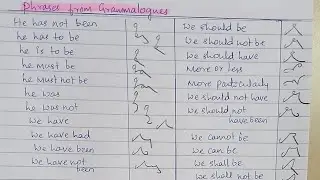 Phrases from Grammalogues
He has not been
he has to be
he is to be
he must be
he must not be
he was
he was not
we have
we have had
we have been
we have not been
we should be
we should not be
we should have
more or less
more particularly
we should not have
we should not have been
we cannot be
we can be
we shall be
we shall not be